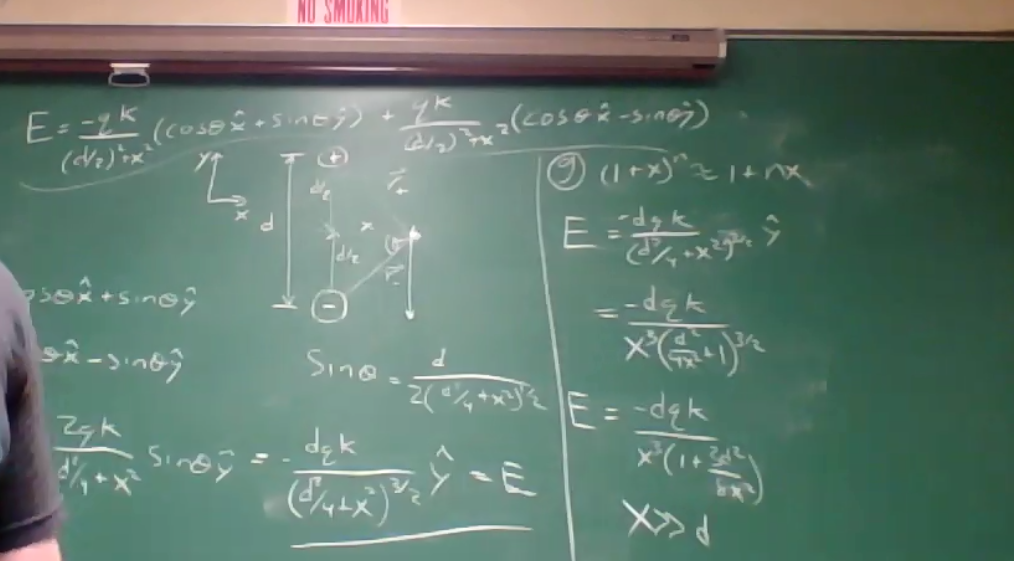 NO SMOKING
E = -qk/((d/2)²+x²) (cosθx̂ + sinθŷ) + qk/((d/2)²+x²) (cosθx̂ - sinθŷ)
y
x
d
+
d/2
r₊
x
d/2
θ
r₋
-
osθx̂ + sinθŷ
θx̂ - sinθŷ
Sinθ = d/(2(d²/4+x²)^1/2)
2qk/(d²/4+x²) sinθŷ = - dqk/(d²/4+x²)^3/2 ŷ = E
g (1+x)ⁿ ≈ 1+nx
E = -dqk/(d²/4+x²)^3/2 ŷ
= -dqk/(x³(d²/4x²+1)^3/2)
E = -dqk/(x³(1+3d²/8x²))
X >> d